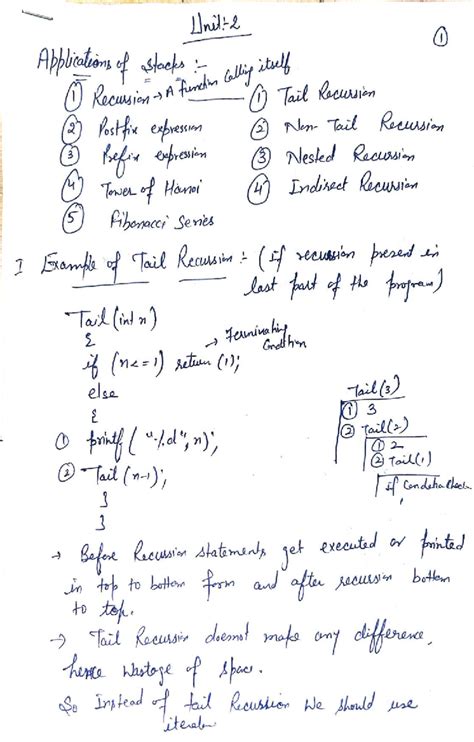 Unit:-2
①
Applications of stacks :-
① Recursion → A function calling itself
② Postfix expression
③ Prefix expression
④ Tower of Hanoi
⑤ Fibonacci Series
① Tail Recursion
② Non-Tail Recursion
③ Nested Recursion
④ Indirect Recursion
I Example of Tail Recursion :- (If recursion present in
last part of the program)
Tail (int n)
{
if (n<=1) return (1); → Terminating Condition
else
{
① printf ("%d", n);
② Tail (n-1);
}
}
Tail(3)
① 3
② Tail(2)
① 2
② Tail(1)
If Condition Check
→ Before Recursion statements get executed or printed
in top to bottom form and after recursion bottom
to top.
→ Tail Recursion doesnot make any difference,
hence wastage of space.
So Instead of tail Recursion we should use